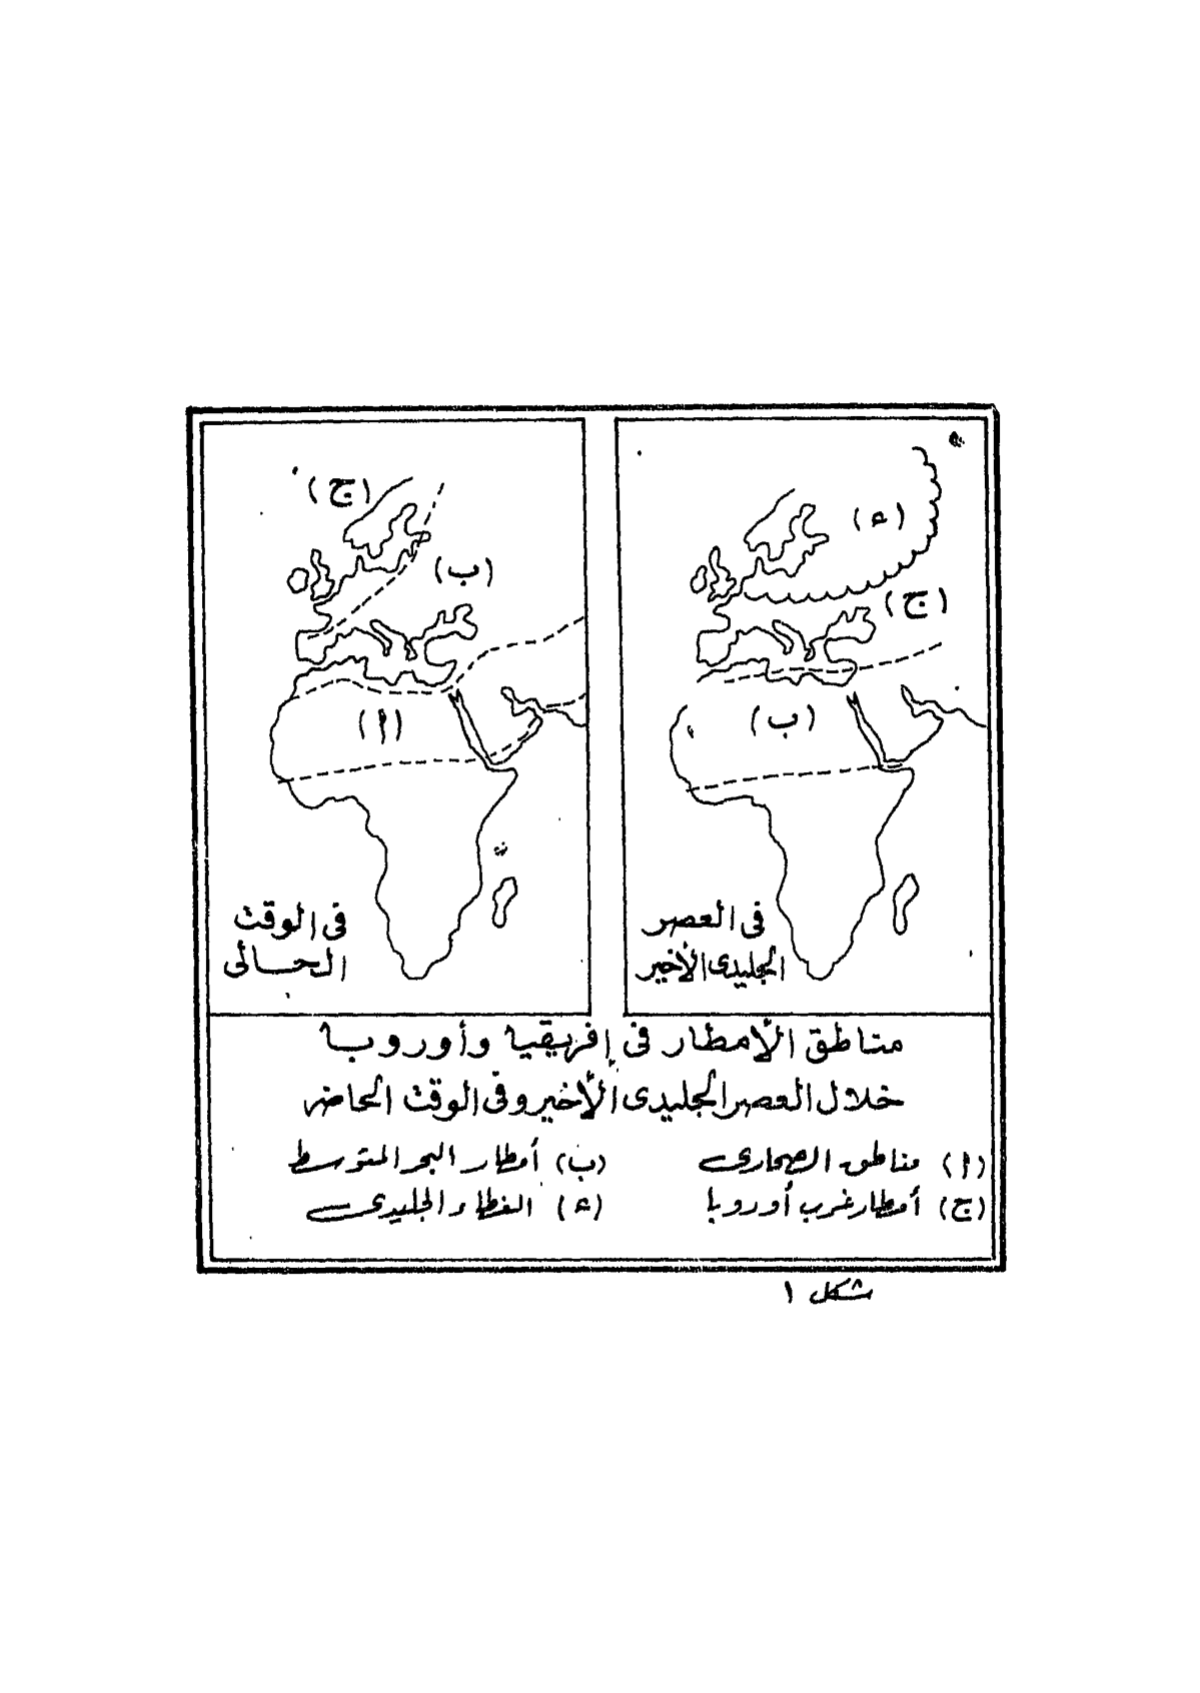 (ء)
(ج)
(ب)
فى العصر
الجليدى الأخير
(ج)
(ب)
(أ)
فى الوقت
الحالى
مناطق الأمطار فى إفريقيا وأوروبا
خلال العصر الجليدى الأخير وفى الوقت الحاضر
(أ) مناطق الصحارى (ب) أمطار البحر المتوسط
(ج) أمطار غرب أوروبا (ء) الغطاء الجليدى
شكل ١